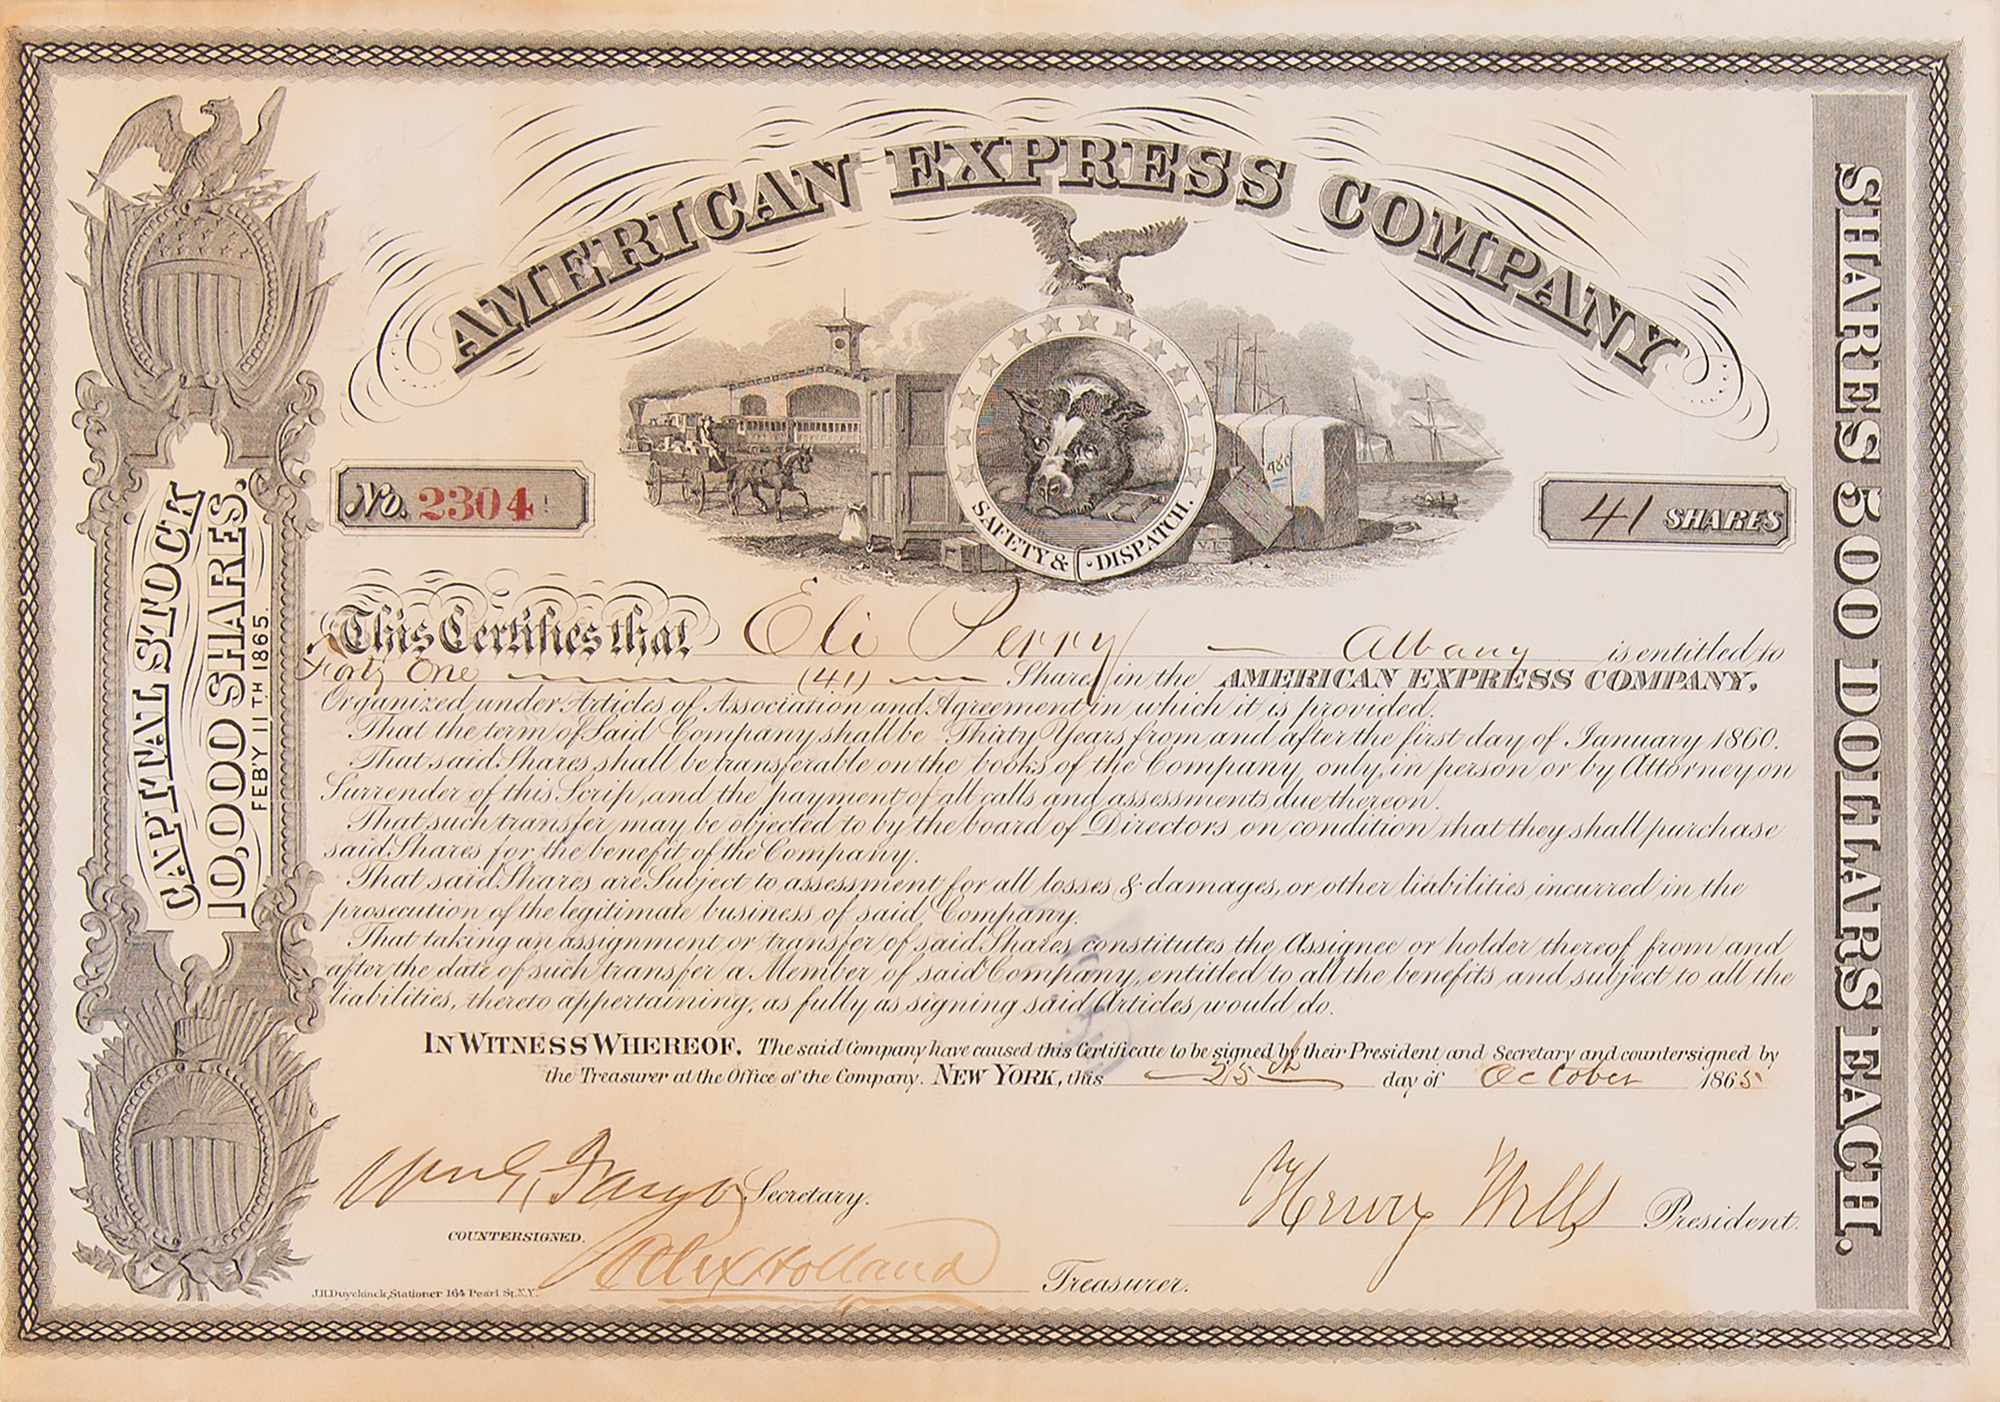 AMERICAN EXPRESS COMPANY
SAFETY & DISPATCH.
980
No. 2304
41 SHARES
CAPITAL STOCK
10,000 SHARES.
FEB'Y 11TH 1865.
SHARES 500 DOLLARS EACH.
This Certifies that Eli Perry — Albany is entitled to
Forty One (41) Shares in the AMERICAN EXPRESS COMPANY,
Organized under Articles of Association and Agreement in which it is provided.
That the term of Said Company shall be Thirty Years from and after the first day of January 1860.
That said Shares shall be transferable on the books of the Company, only, in person or by Attorney on
Surrender of this Scrip, and the payment of all calls and assessments due thereon.
That such transfer may be objected to by the board of Directors on condition that they shall purchase
said Shares for the benefit of the Company.
That said Shares are Subject to assessment for all losses & damages, or other liabilities incurred in the
prosecution of the legitimate business of said Company.
That taking an assignment or transfer of said Shares, constitutes the Assignee or holder thereof from and
after the date of such transfer a Member of said Company, entitled to all the benefits and subject to all the
liabilities, thereto appertaining, as fully as signing said Articles would do.
IN WITNESS WHEREOF. The said Company have caused this Certificate to be signed by their President and Secretary and countersigned by
the Treasurer at the Office of the Company. NEW YORK, this 25th day of October 1865
Wm G, Fargo Secretary.
Henry Wells President.
COUNTERSIGNED.
Alex Holland Treasurer.
J.H. Duyckinck, Stationer 164 Pearl St. N.Y.